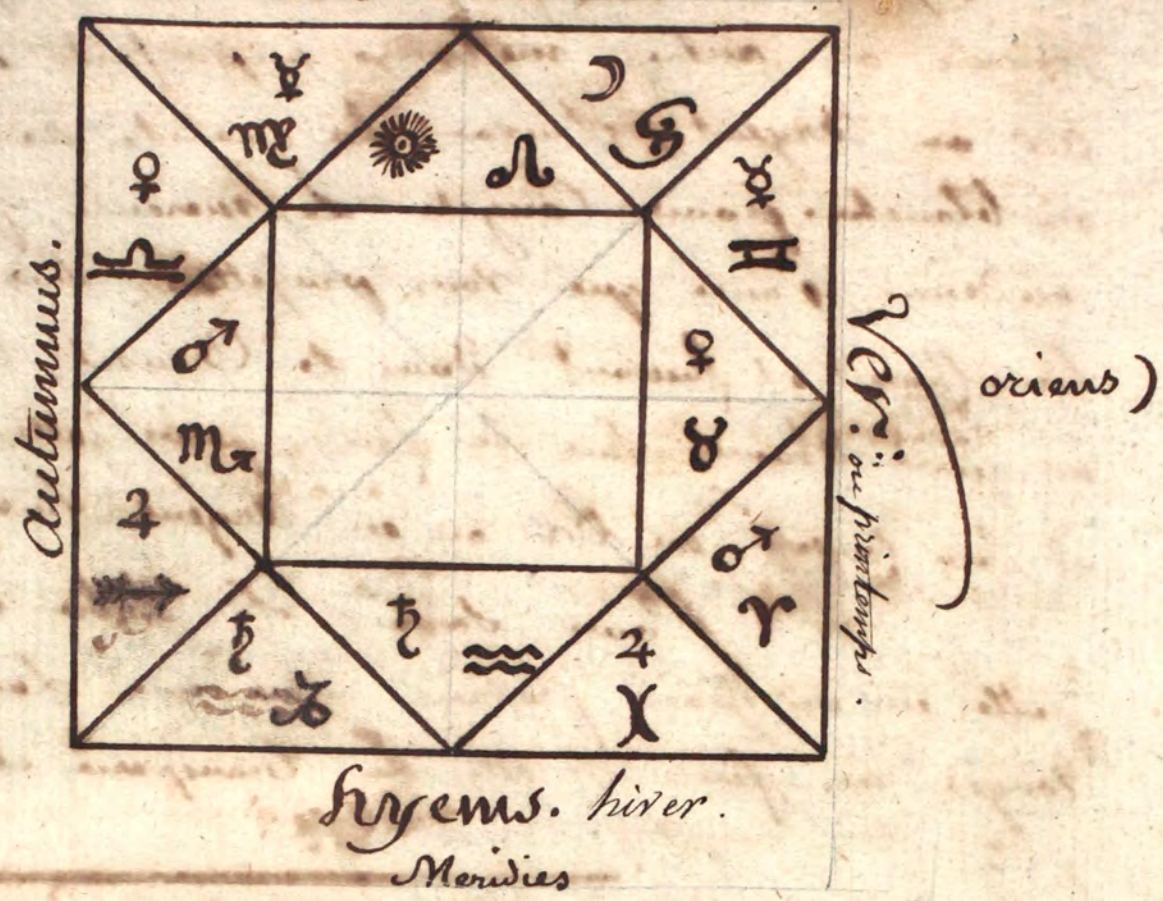 ☿ ☽
♍ ☉ ♌ ♋
♀ ☿
♎ ♊
♂ ♀
♏ ♉
♃ ♂
♐ ♈
♄ ♄ ♃
♑ ♒ ♓
Autumnus.
Ver. ou printemps.
oriens)
hyems. hiver.
Meridies